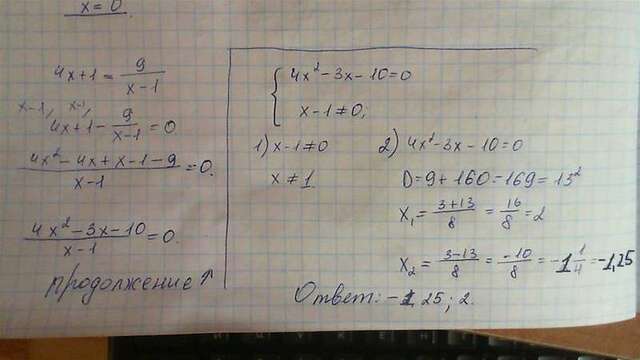 x = 0.
4x+1 = 9/(x-1)
x-1, x-1,
4x+1 - 9/(x-1) = 0
(4x²-4x+x-1-9)/(x-1) = 0.
(4x²-3x-10)/(x-1) = 0.
продолжение ↑
{ 4x²-3x-10=0
x-1≠0;
1) x-1≠0
x ≠ 1.
2) 4x²-3x-10=0
D=9+160=169=13²
x₁ = (3+13)/8 = 16/8 = 2
x₂ = (3-13)/8 = -10/8 = -1 1/4 = -1,25
Ответ: -1,25; 2.